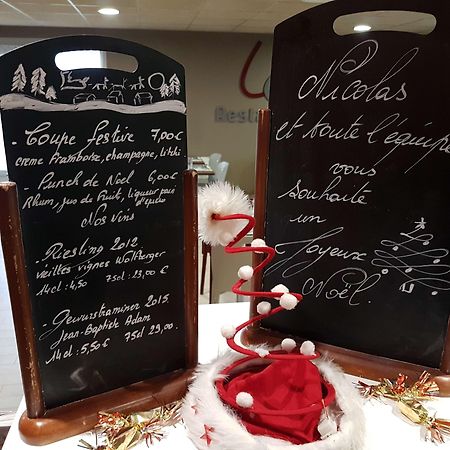 Coupe festive 7,00€
creme Framboise, champagne, litchi
- Punch de Noel 6,00€
Rhum, jus de Fruit, liqueur pain
d'épices
Nos Vins
- Riesling 2012
vieilles vignes Wolfberger
14cl: 4,50 75cl: 23,00€
- Gewurstraminer 2015
Jean-Baptiste Adam
14cl: 5,50€ 75cl: 29,00.
Nicolas
et toute l'équipe
vous
souhaite
un
Joyeux
Noël.
Resta